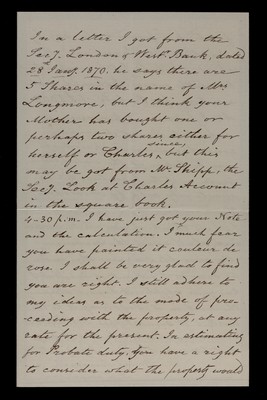 In a letter I got from the
Secy. London & Westr. Bank, dated
28 Jany. 1870. he says there are
5 Shares in the name of Mrs
Longmore, but I think your
Mother has bought one or
perhaps two shares either for
herself or Charles since, but this
may be got from Mr. Shipp, the
Secy. Look at Charles Account
in the square book.
4-30 p.m. I have just got your Note
and the calculation. I much fear
you have painted it couleur de
rose I shall be very glad to find
you are right. I still adhere to
my ideas as to the mode of pro-
ceeding with the property, at any
rate for the present. In estimating
for Probate duty, you have a right
to consider what the property would